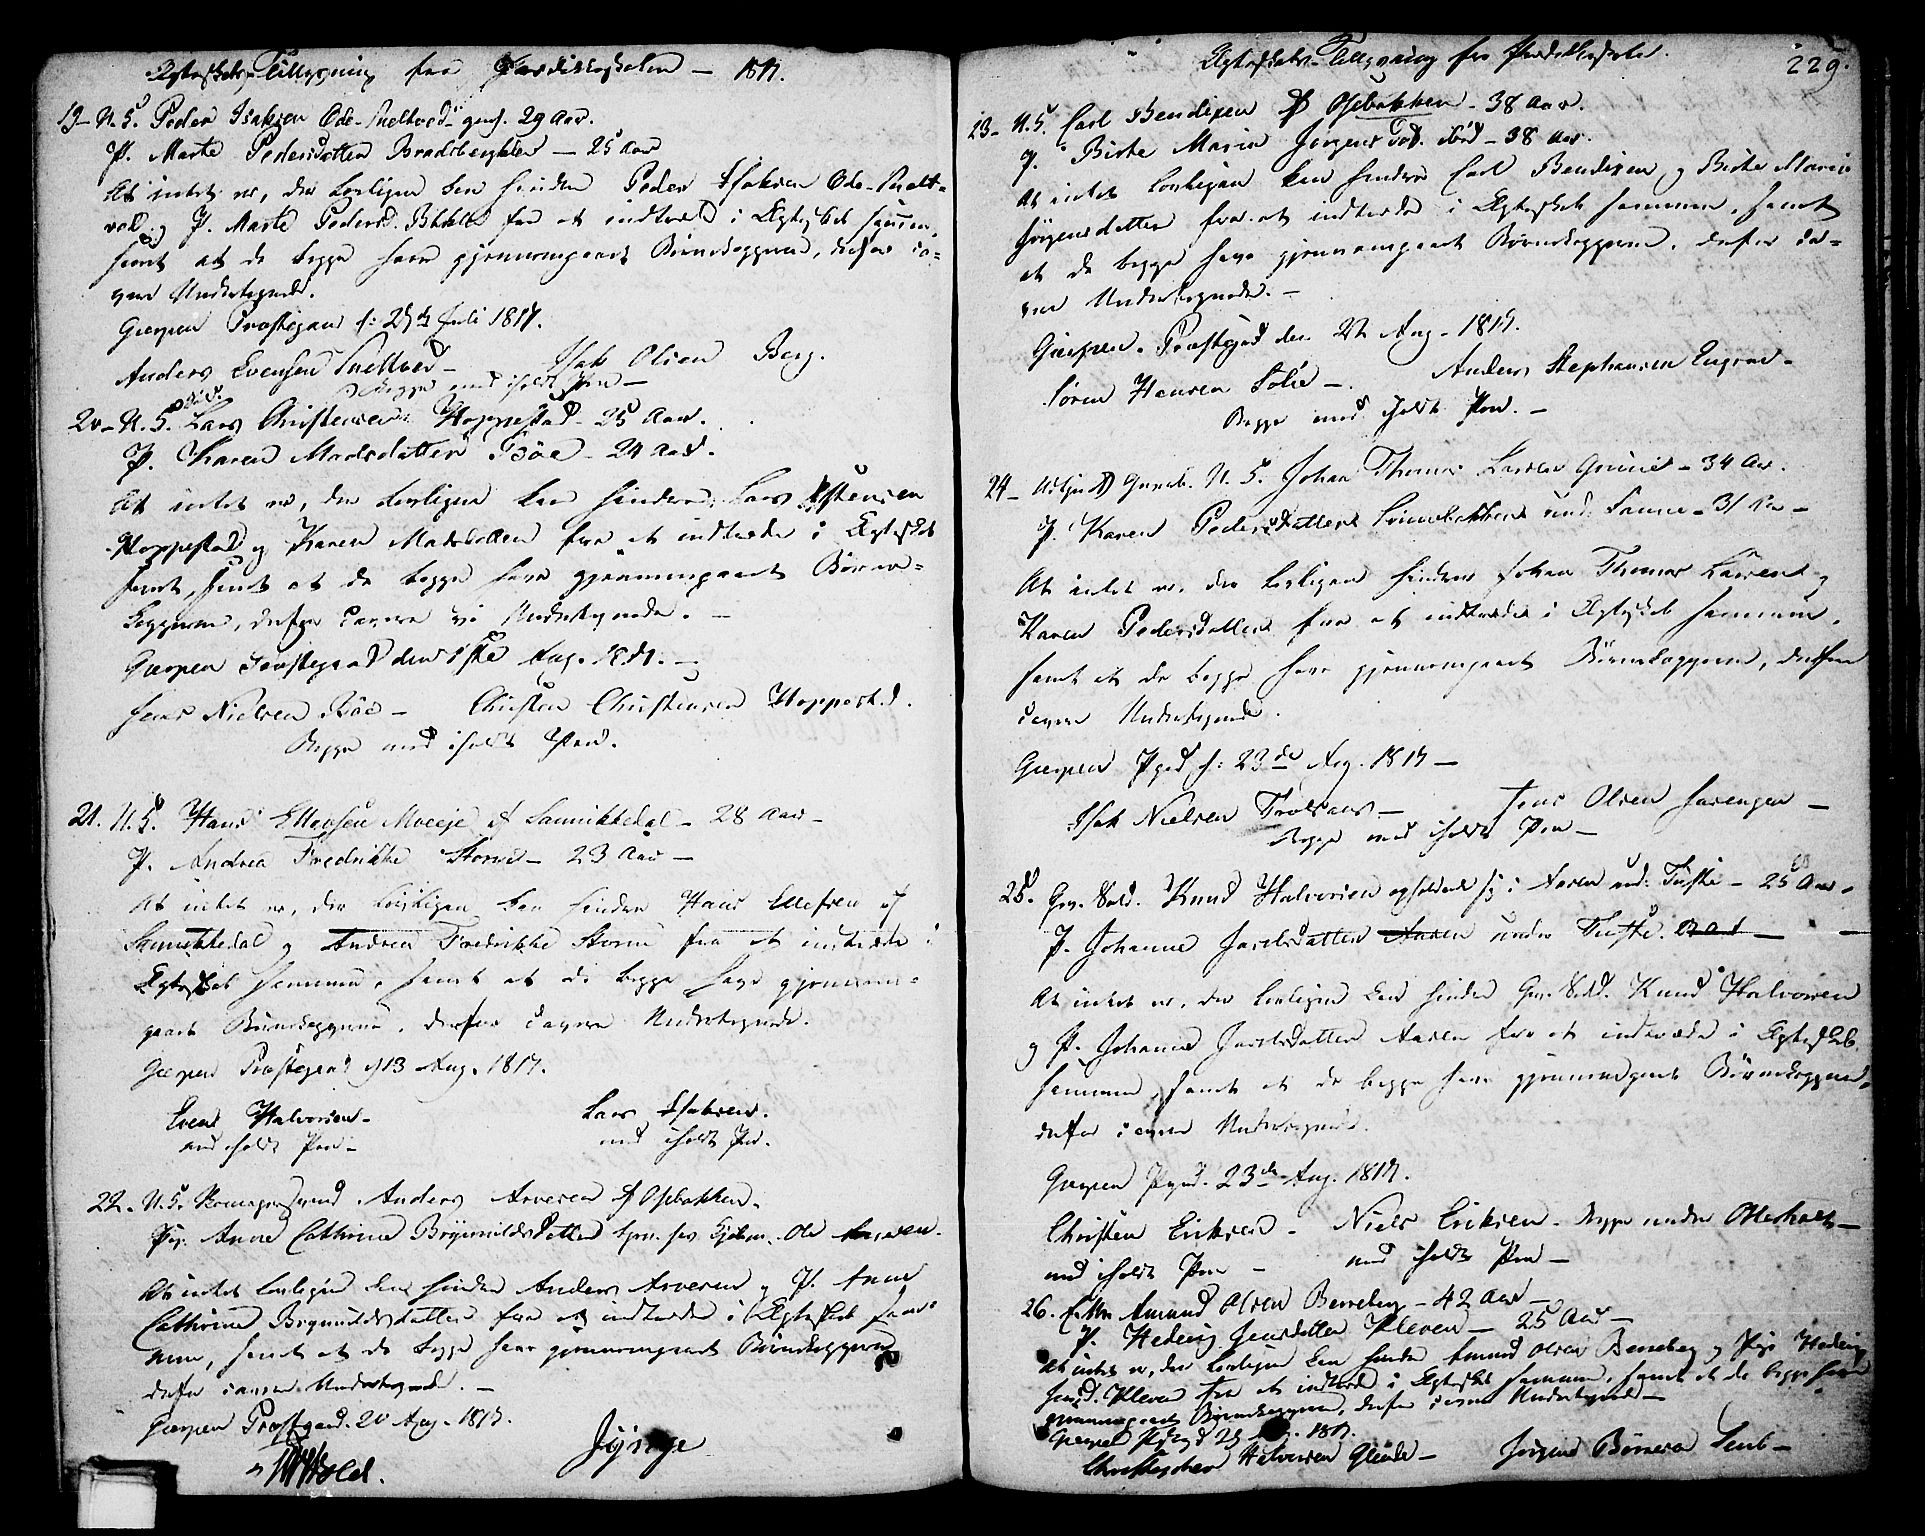 Ægteskabs Tillysning fra Prædikestolen – 1817.
19– U. K. Peder Isaksen Ode-Sneltved – 29 Aar.
P. Marte Pedersdatter Bradsbergklev – 25 Aar
At intet er, der lovligen kan hindre Peder Isaksen Ode-Snelt-
ved og P. Marte Pedersd. fra at indtræde i Ægteskab sammen,
samt at de begge have gjennemgaaet Børnekopperne, derfor ca-
vere Undertegnede.
Gierpen Præstegaard d: 25de Juli 1817.
Anders Evensen Sneltved – Isak Olsen Berg.
Begge med iholdt Pen –
20– U. K. Lars Christensen Hoppestad – 25 Aar.
P. Karen Madsdatter Bøe – 24 Aar.
At intet er, der lovligen kan hindre Lars Christensen
Hoppestad og Karen Madsdatter fra at indtræde i Ægteskab
samt, samt at de begge have gjennemgaaet Børne-
kopperne, derfor cavere vi Undertegnede. –
Gierpen Præstegaard den 1ste Aug. 1817. –
Jens Nielsen Bøe – Christen Christensen Hoppestad.
Begge med iholdt Pen.
21. U. K. Hans Ellevsen Moeeje af Sannikkedal – 28 Aar –
P. Andrea Fredrikke Storm – 23 Aar –
At intet er, der lovligen kan hindre Hans Ellefsen af
Sannikkedal og Andrea Fredrikke Storm fra at indtræde i
Ægteskab sammen, samt at de begge have gjennem-
gaaet Børnekopperne, derfor cavere Undertegnede.
Gierpen Præstegaard d 13 Aug. 1817.
Halvorsen – Lars Isaksen.
med iholdt Pen – med iholdt Pen.
22. U. K. Anders Arvesen af Osebakken.
Pig. Anne Cathrine Brynnildsdatter hos Ole
At intet lovligen kan hindre Anders Arvesen og P. Anne
Cathrine Brynnildsdatter fra at indtræde i Ægteskab sam-
men, samt at de begge have gjennemgaaet Børnekopperne
derfor cavere Undertegnede. –
Gierpen Præstgaard. 20 Aug. 1817.
Ægteskabs Tillysning fra Prædikestolen. 229.
23– U. K. Carl Bendixen af Osebakken – 38 Aar.
P. Birte Maria Jørgensdat. – 38 Aar.
At intet lovligen kan hindre Carl Bendixen og Birte Maria
Jørgensdatter fra at indtræde i Ægteskab sammen, samt
at de begge have gjennemgaaet Børnekopperne, derfor ca-
vere Undertegnede. –
Gierpen Præstegrd den 22 Aug. 1817.
Søren Hansen Solie – Anders Stephansen Engrav –
Begge med iholdt Pen. –
24– U. K. Johan Thomas Larsen – 34 Aar.
P. Karen Pedersdatter und: – 31 Aar –
At intet er, der lovligen hindrer Johan Thomas Larsen og
Karen Pedersdatter fra at indtræde i Ægteskab sammen,
samt at de begge have gjennemgaaet Børnekopperne, derfor
cavere Undertegnede.
Gierpen Pgrd d: 23de Aug. 1817 –
Isak Nielsen – Jens Olsen –
Begge med iholdt Pen –
25. Gev. Sold. Knud Halvorsen opholdende sig i Aasen und: Tufte – 25 Aar.
P. Johanne Jacobsdatter Aasen under Tufte. –
At intet er, der lovligen kan hindre Gev. Sold. Knud Halvorsen
og P. Johanne Jacobsdatter Aasen fra at indtræde i Ægteskab
sammen, samt at de begge have gjennemgaaet Børnekopperne,
derfor cavere Undertegnede.
Gierpen Pgrd. 23de Aug. 1817.
Christen Eriksen – Niels Eriksen – Begge under Oterholt –
med iholdt Pen – med iholdt Pen –
26. Amund Olsen Berreberg – 42 Aar –
P. Hedevig Jensdatter Kleven – 25 Aar –
At intet er, der lovligen kan hindre Amund Olsen Berreberg og Pige Hedevig
Jensd. Kleven fra at indtræde i Ægteskab sammen, samt at de begge have
gjennemgaaet Børnekopperne, derfor cavere Undertegnede –
Gierpen Aug. 1817.
Christopher Halvorsen – Jørgen –